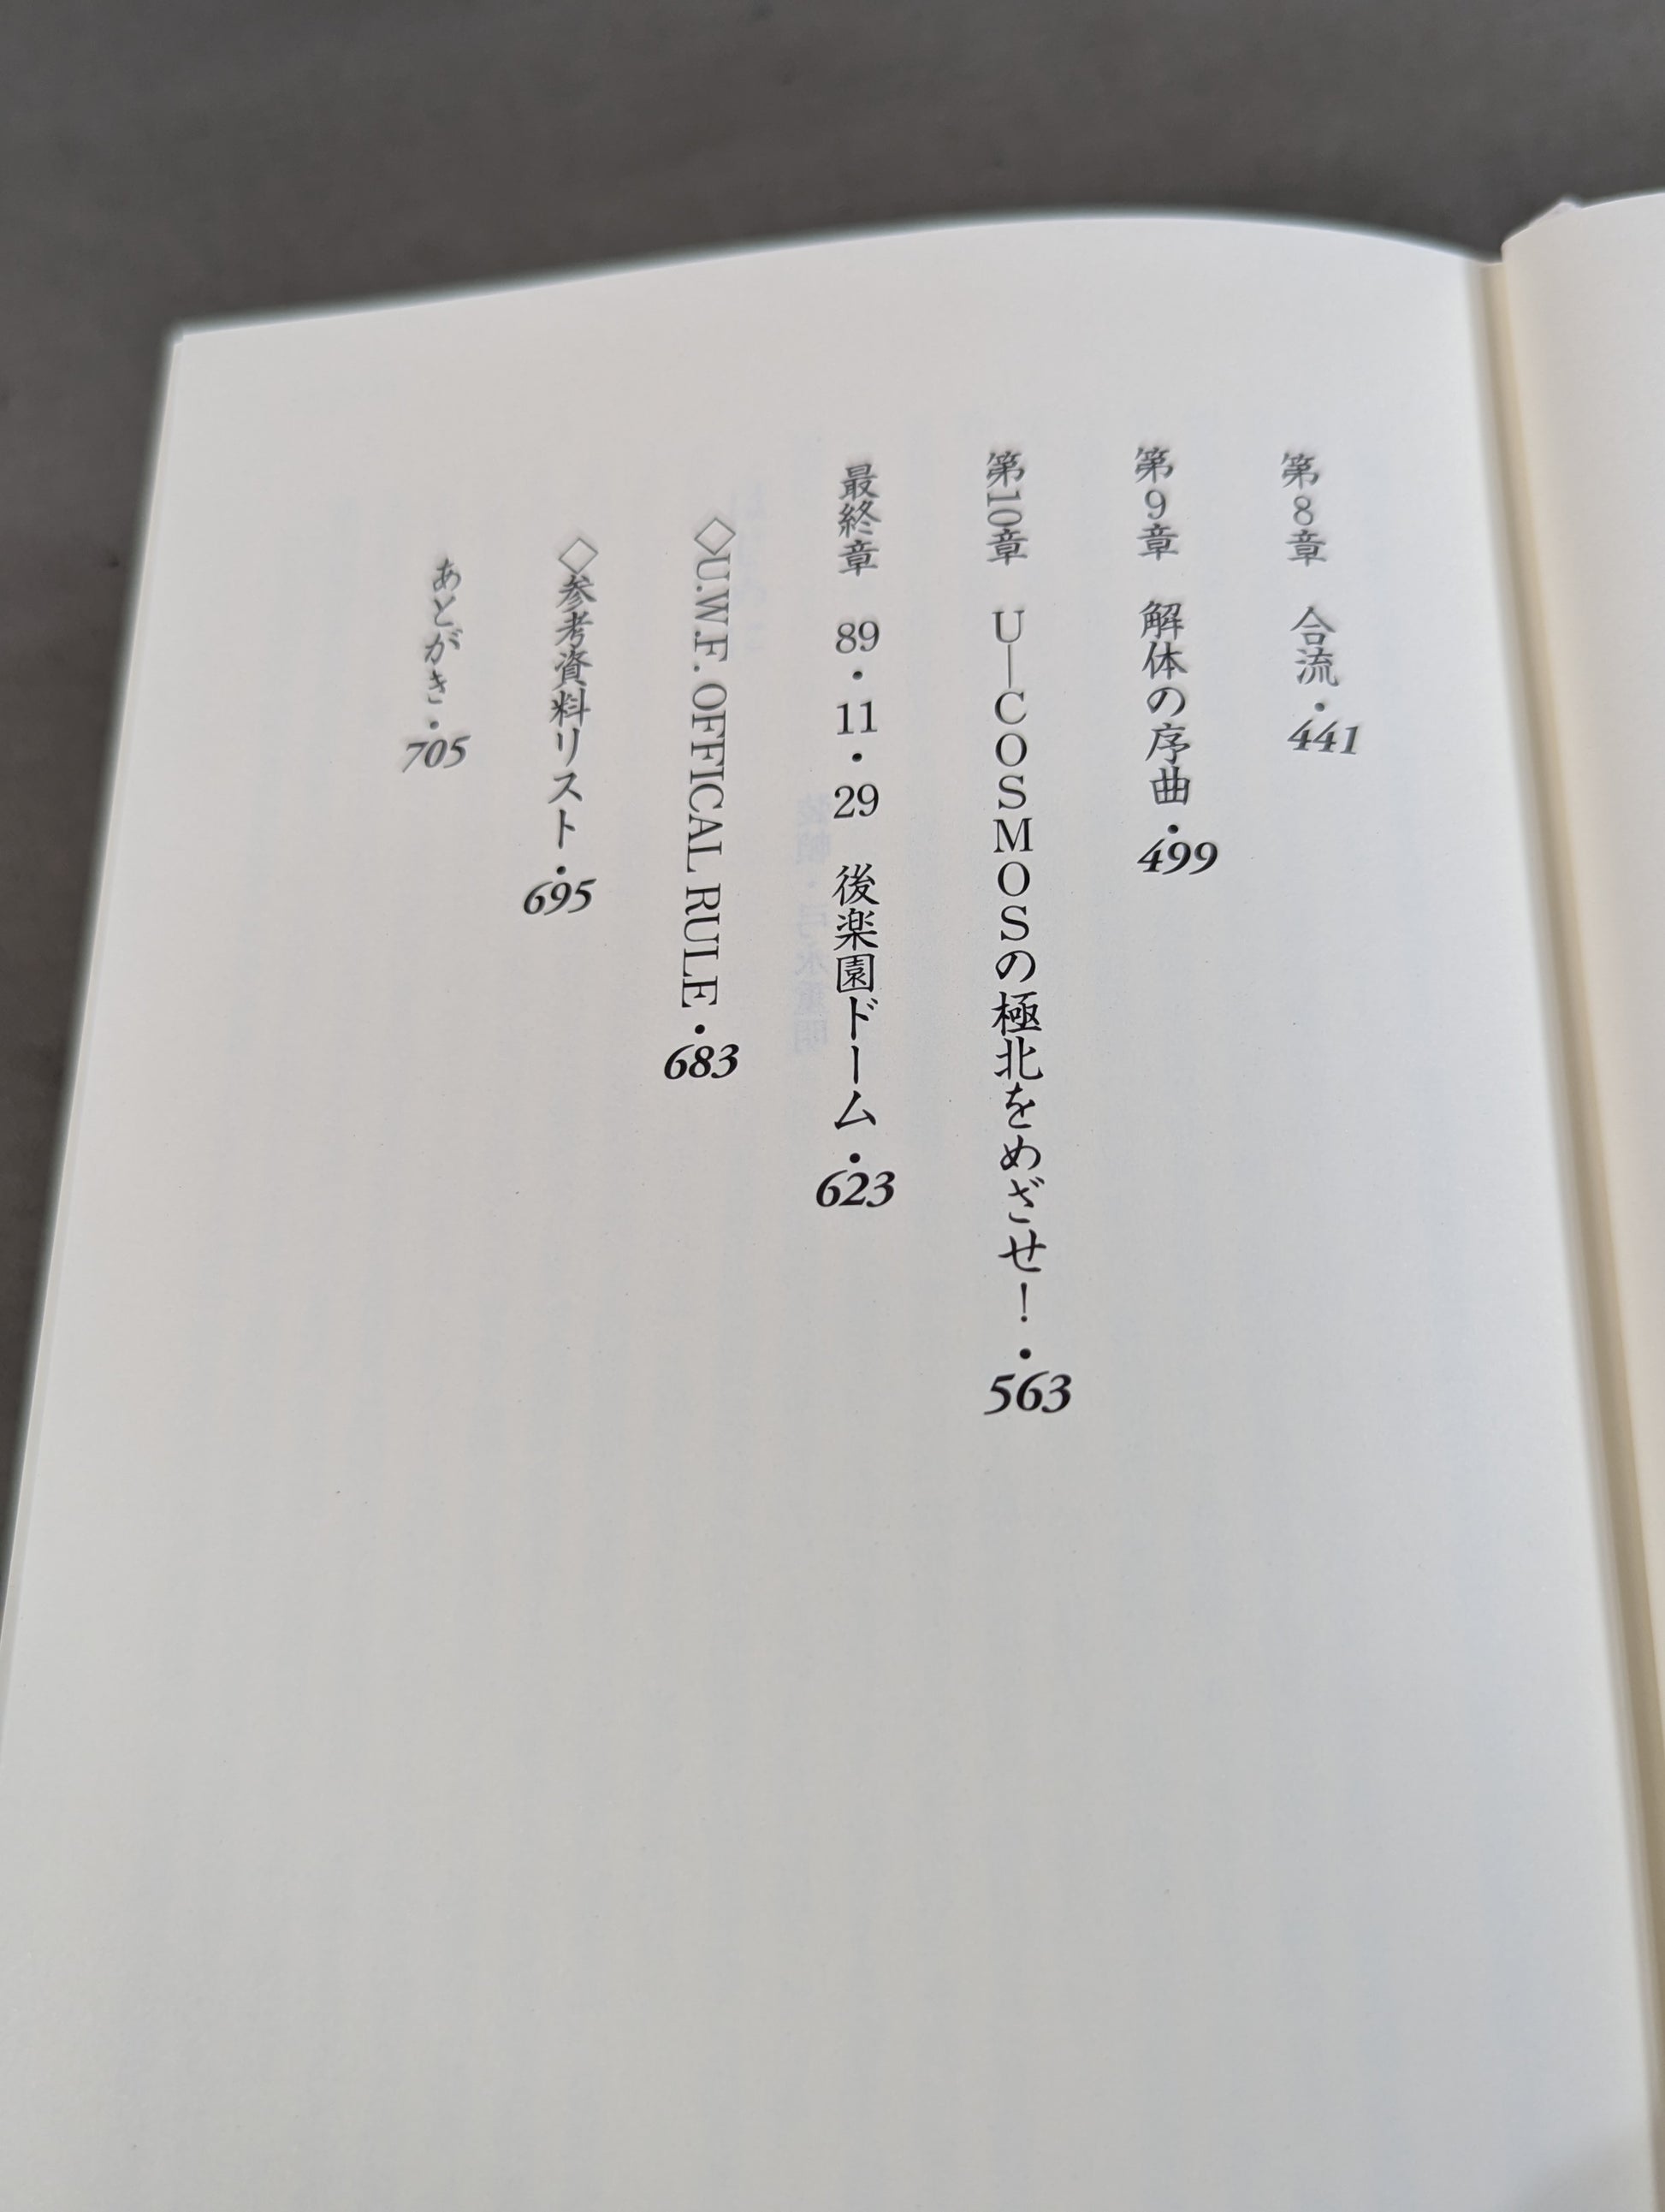 第8章　合流・441
第9章　解体の序曲・499
第10章　U―COSMOSの極北をめざせ！・563
最終章　89・11・29　後楽園ドーム・623
◇U.W.F. OFFICAL RULE・683
◇参考資料リスト・695
あとがき・705